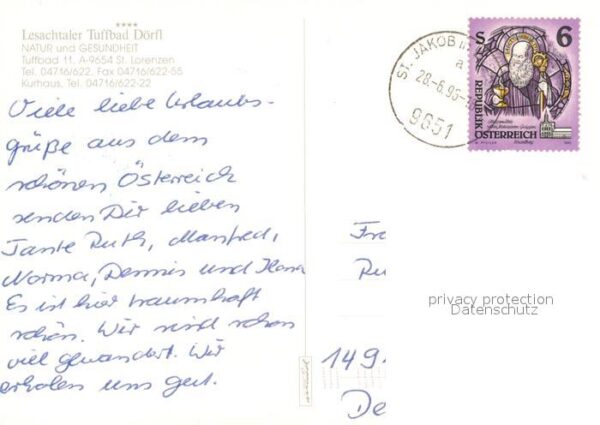 ★★★★
Lesachtaler Tuffbad Dörfl
NATUR und GESUNDHEIT
Tuffbad 11, A-9654 St. Lorenzen
Tel. 04716/622, Fax 04716/622-55
Kurhaus, Tel. 04716/622-22
Viele liebe Urlaubs-
grüße aus dem
schönen Österreich
senden Dir lieben
Tante Ruth, Manfred,
Norma, Dennis und
Es ist hier traumhaft
schön. Wir sind schon
viel gewandert. Wir
erholen uns gut.
ST. JAKOB
28.-6.95
a
9651
S 6
REPUBLIK
ÖSTERREICH
Fra
Ru
149
De
privacy protection
Datenschutz